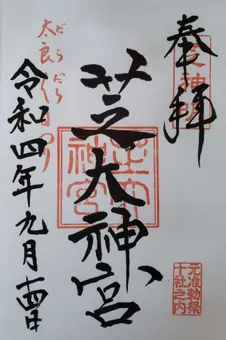 奉拝
芝大神宮
だらだら
太良
令和四年九月十四日
元准勅祭
十社之内